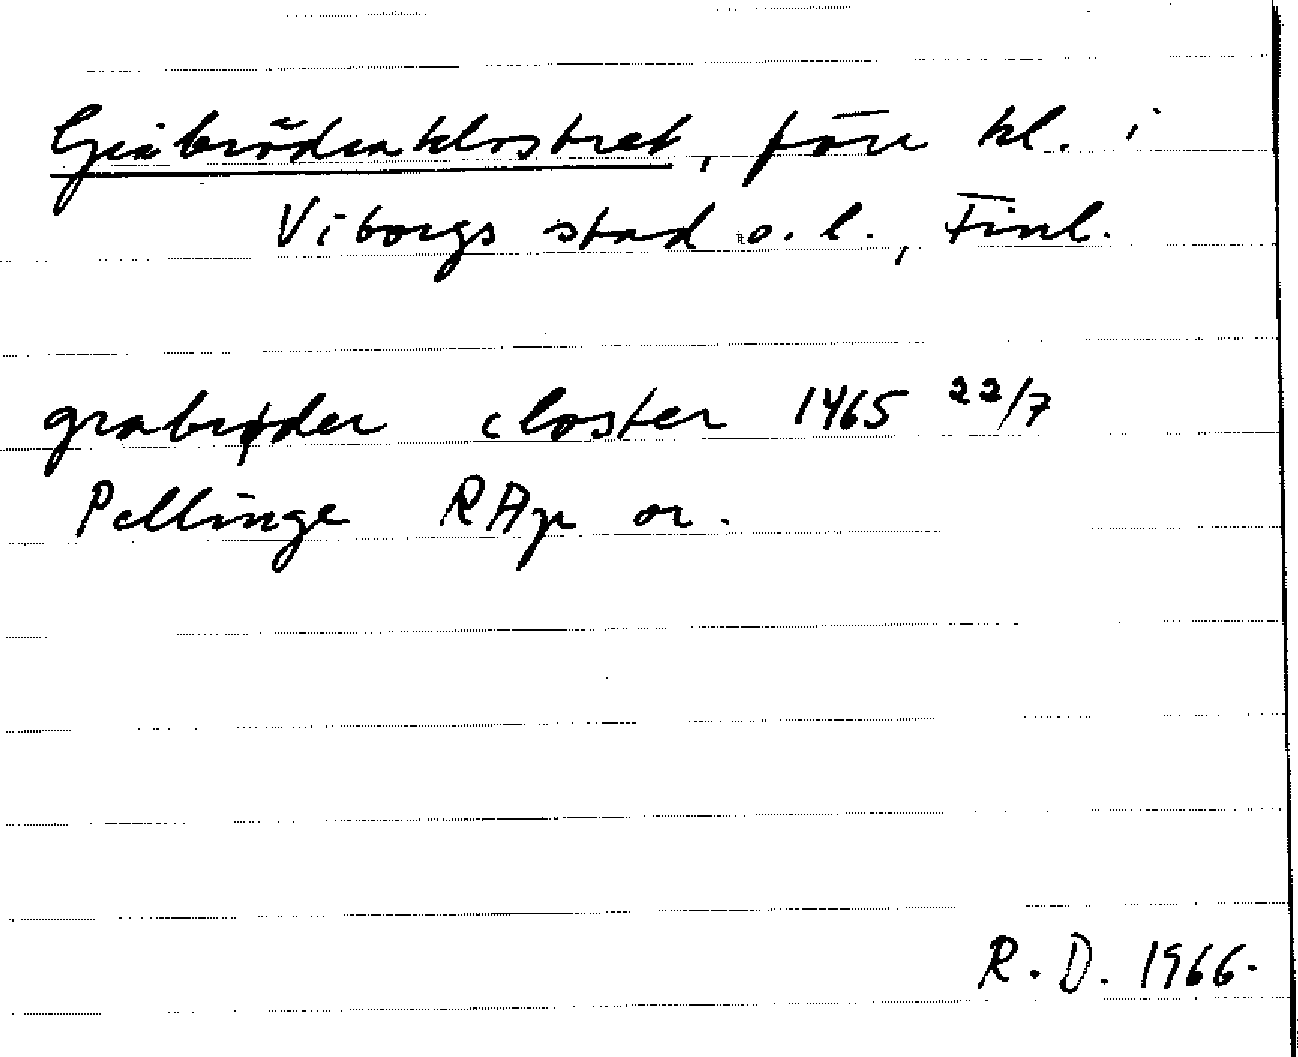 Gråbrödraklostret, förr kl. i
Viborgs stad o. l., Finl.
grabrøder closter 1465 22/7
Pellinge RAp or.
R. D. 1966.